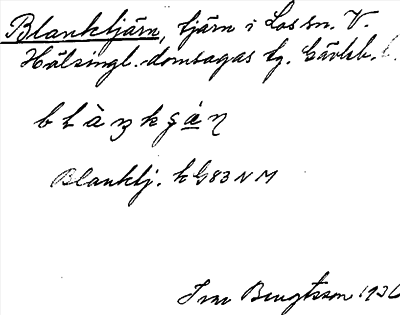 Blanktjärn, tjärn i Los sn. V.
Hälsingl. domsagas tg. Gävleb. l.
blàŋkʂä̀ŋ
Blanktj. k G83 NM
Ivar Bengtsson 1936